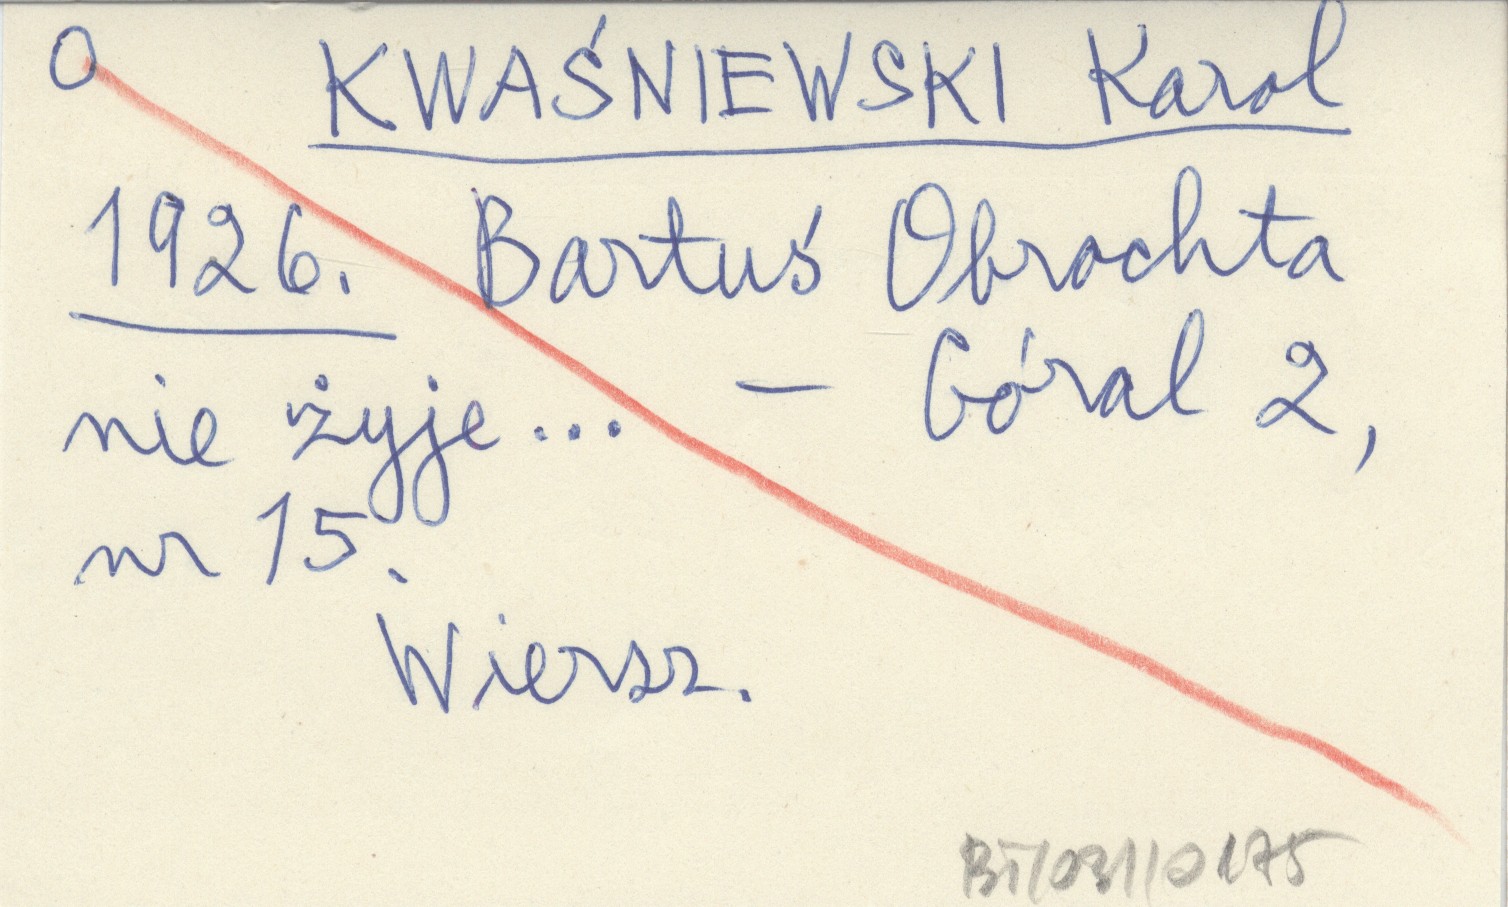 O KWAŚNIEWSKI Karol
1926. Bartuś Obrochta
nie żyje... – Góral 2,
nr 15.
Wiersz.
BT/031/0175